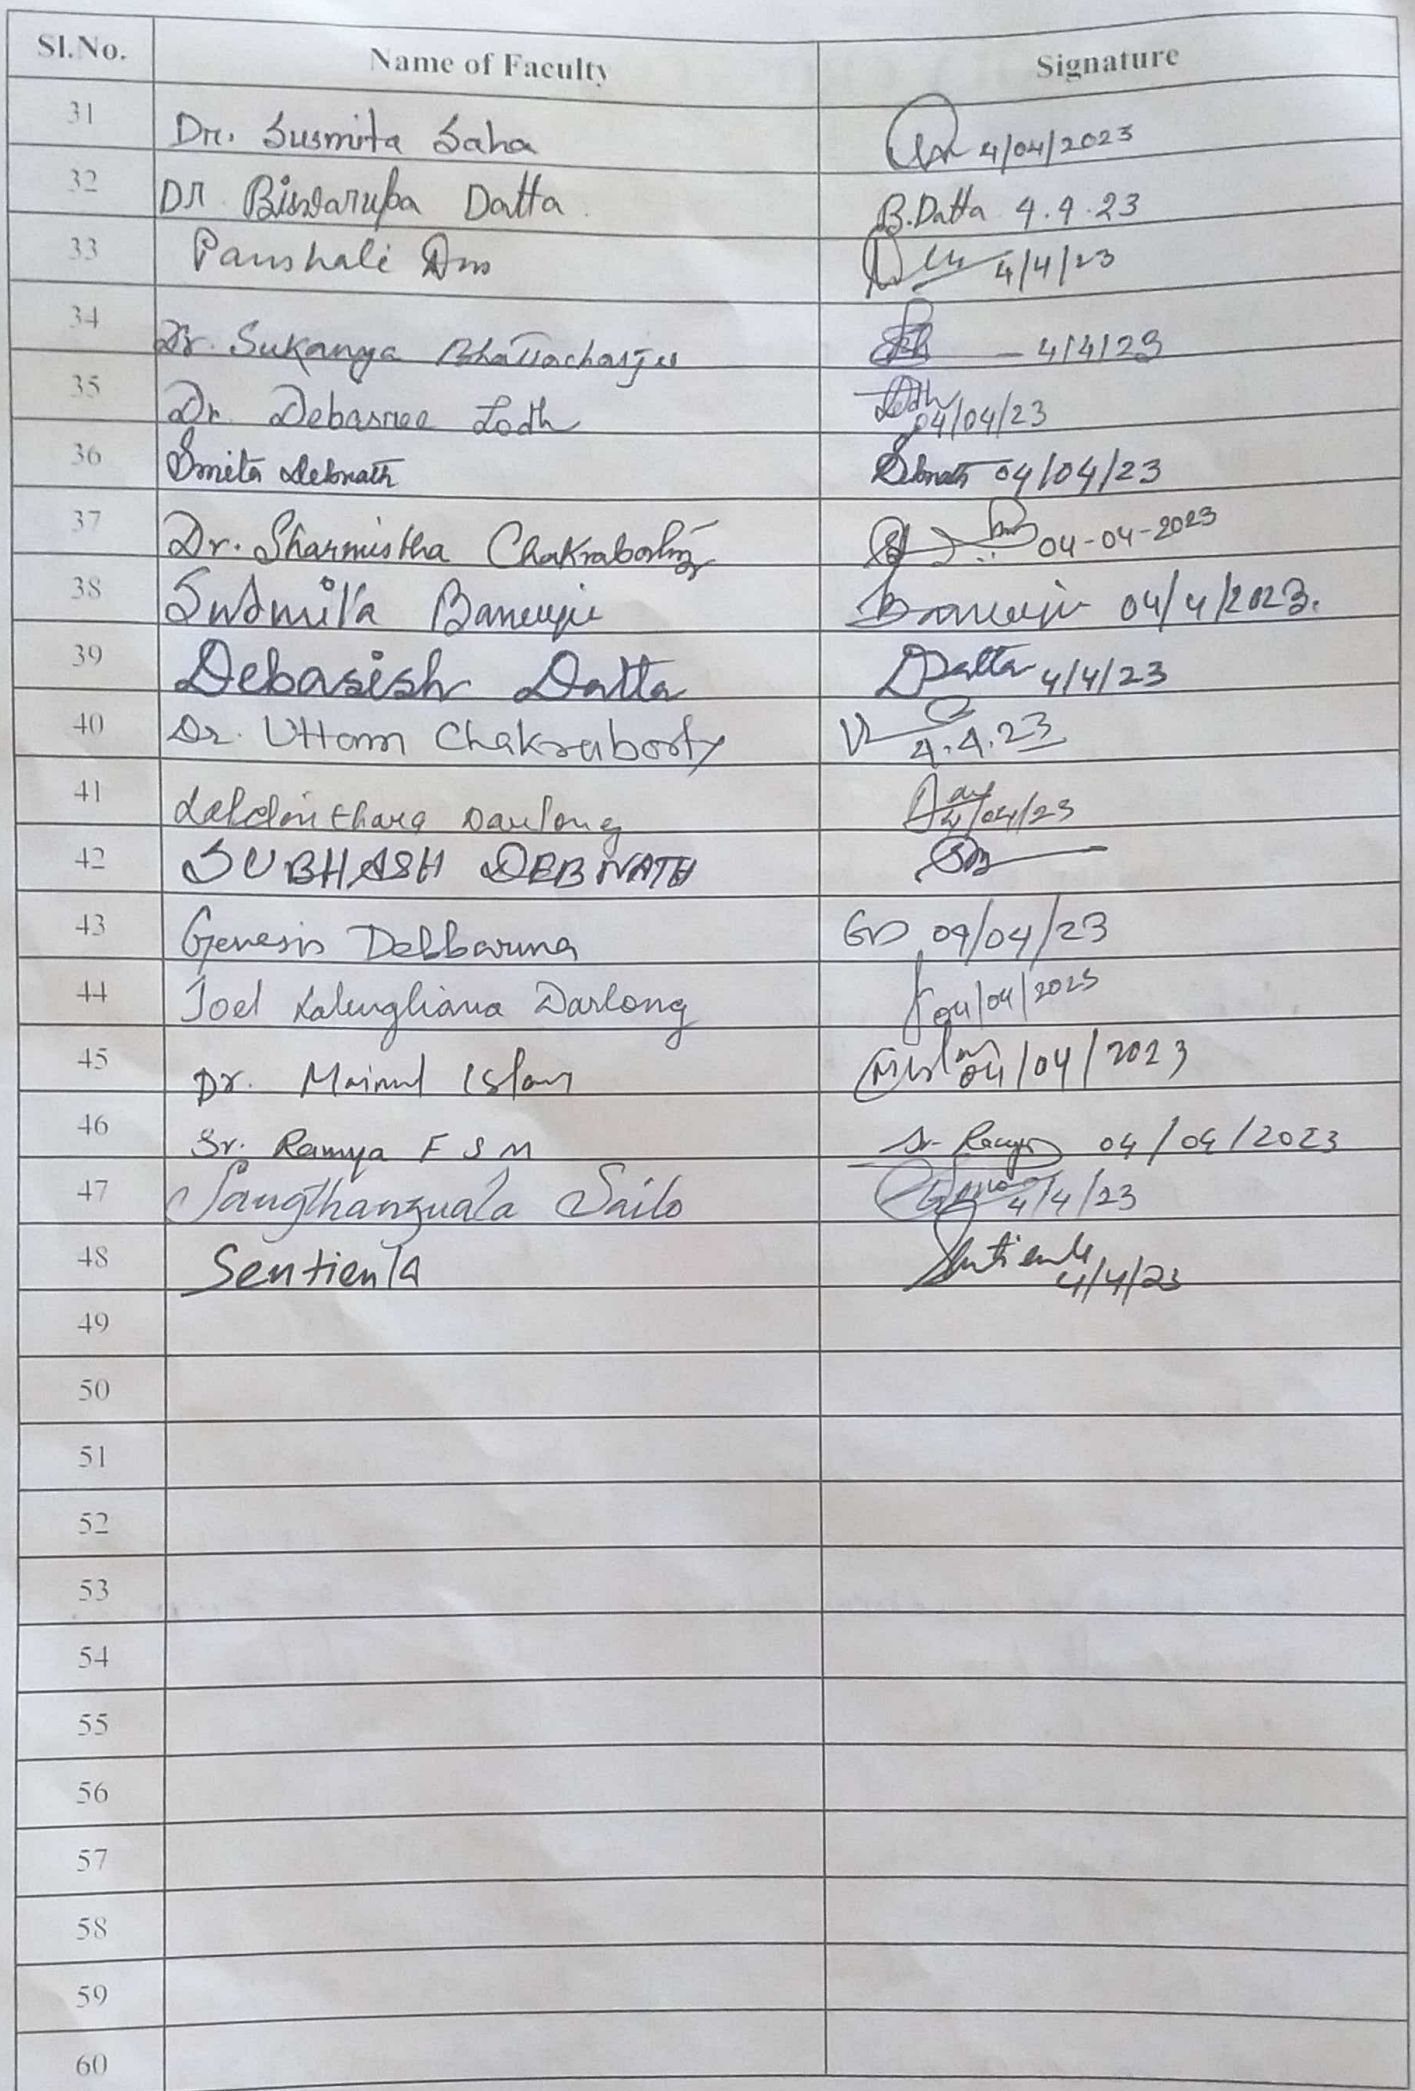 Sl.No. Name of Faculty Signature
31 Dr. Susmita Saha 4/04/2023
32 Dr Biswarupa Datta B.Datta 4.4.23
33 Paushali Das 4/4/23
34 Dr. Sukanya Bhattacharjee 4/4/23
35 Dr. Debasree Lodh Lodh 04/04/23
36 Smita Debnath Debnath 04/04/23
37 Dr. Sharmistha Chakraborty 04-04-2023
38 Susmita Banerjee Banerjee 04/4/2023.
39 Debasish Datta DDatta 4/4/23
40 Dr. Uttam Chakraborty 4.4.23
41 Darlong 4/04/23
42 SUBHASH DEBNATH
43 Genesis Debbarma GD 04/04/23
44 Joel Darlong 04/04/2023
45 Dr. Mainul Islam 04/04/2023
46 Sr. Ramya F S M Sr. Ramya 04/04/2023
47 Sangthanzuala Sailo 4/4/23
48 Sentienla Sentienla 4/4/23
49
50
51
52
53
54
55
56
57
58
59
60